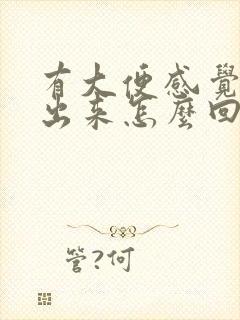 有大便感覺
出来怎麼回
管?何